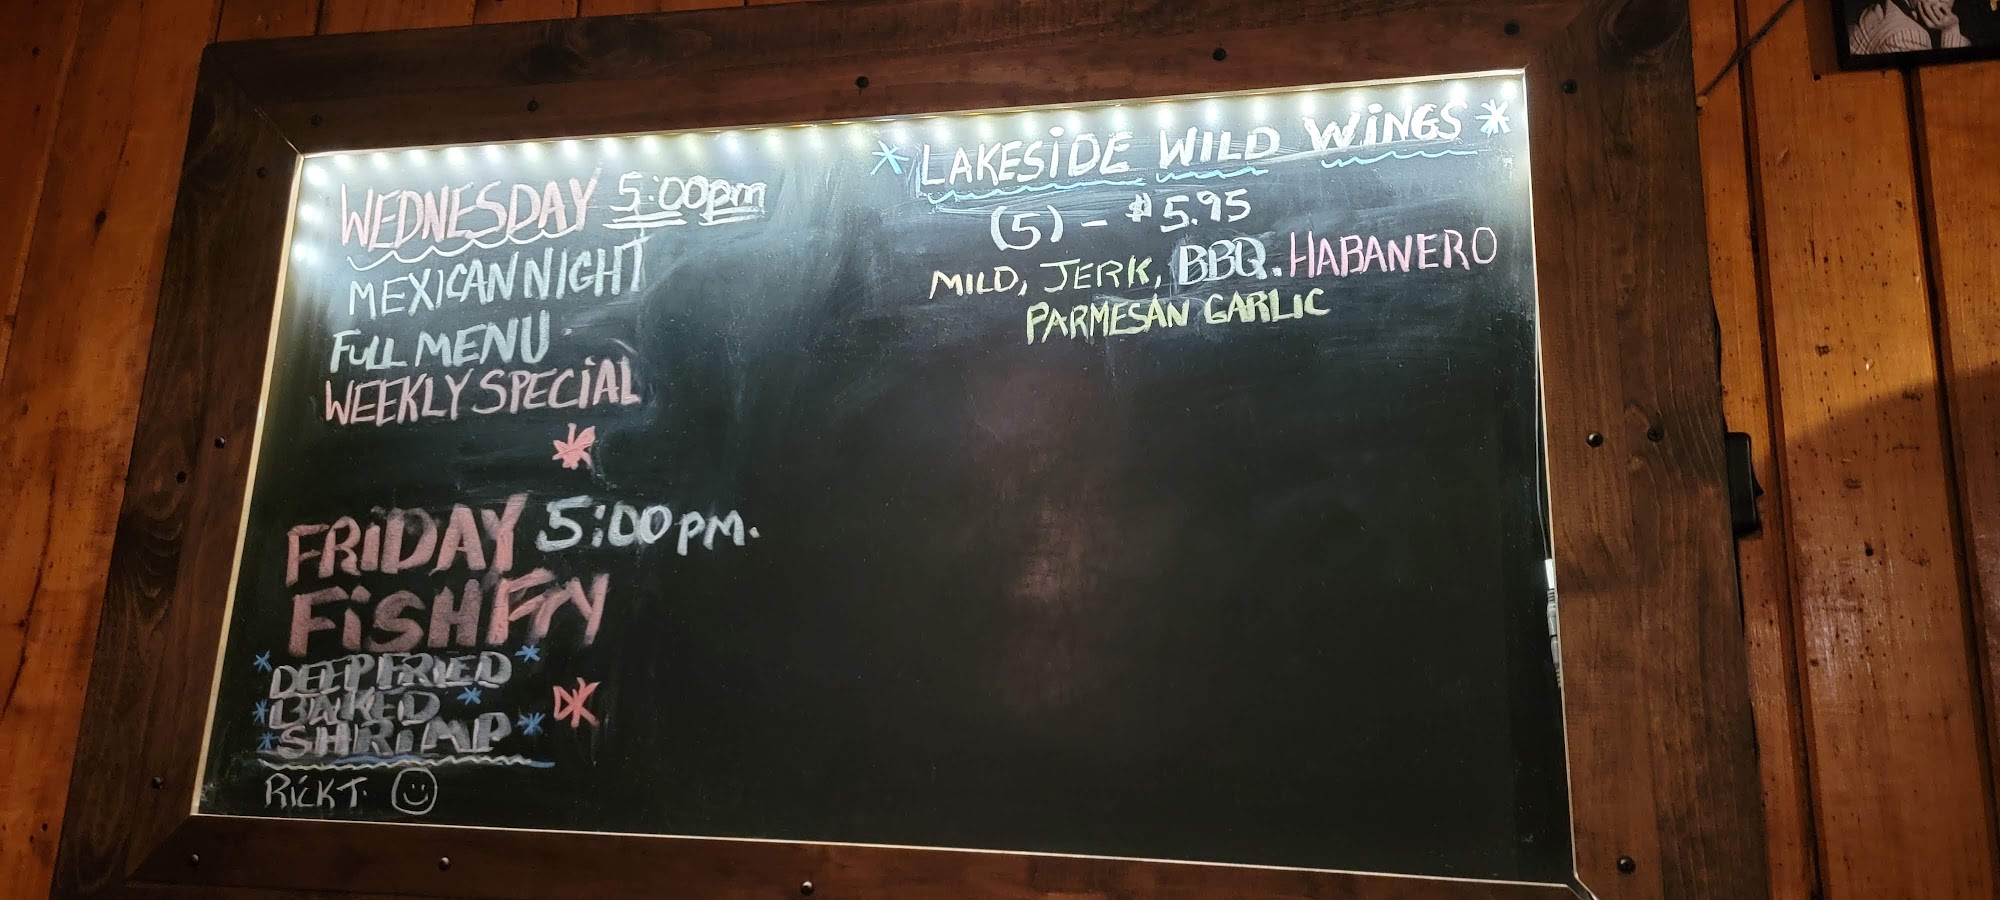 WEDNESDAY 5:00pm
MEXICAN NIGHT
FULL MENU
WEEKLY SPECIAL
FRIDAY 5:00pm.
FISH Fry
DEEP FRIED
BAKED
SHRIMP
RICK T.
LAKESIDE WILD WINGS
(5) - $5.95
MILD, JERK, BBQ. HABANERO
PARMESAN GARLIC